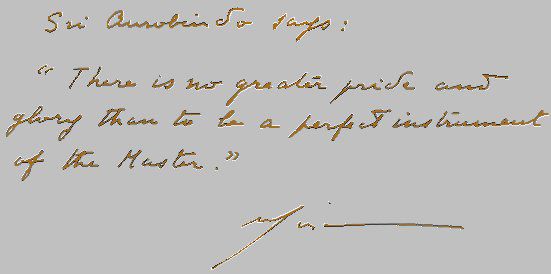 Sri Aurobindo says:
“There is no greater pride and
glory than to be a perfect instrument
of the Master.”